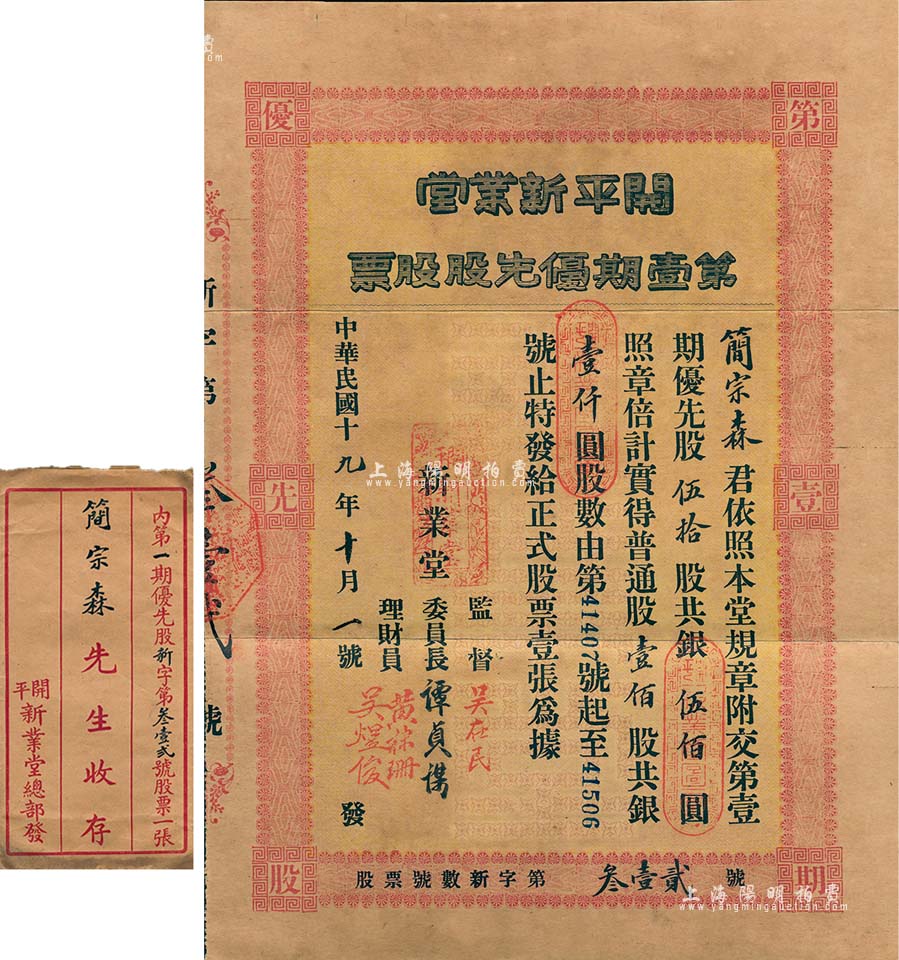 優先股
第壹期
開平新業堂
第壹期優先股股票
簡宗森君依照本堂規章附交第壹
期優先股伍拾股共銀伍佰圓
照章倍計實得普通股壹佰股共銀
壹仟圓股數由第41407號起至41506
號止特發給正式股票壹張為據
新業堂
監督 吳在民
委員長 譚貞謀
理財員 黃𥿎珊 吳煜俊
發
中華民國十九年十月一號
股票號數新字第叁壹貳號
新字第叁壹貳號
內第一期優先股新字第叁壹貳號股票一張
簡宗森先生收存
開平新業堂總部發
上海陽明拍賣
www.yangmingauction.com
上海陽明拍賣
www.yangmingauction.com